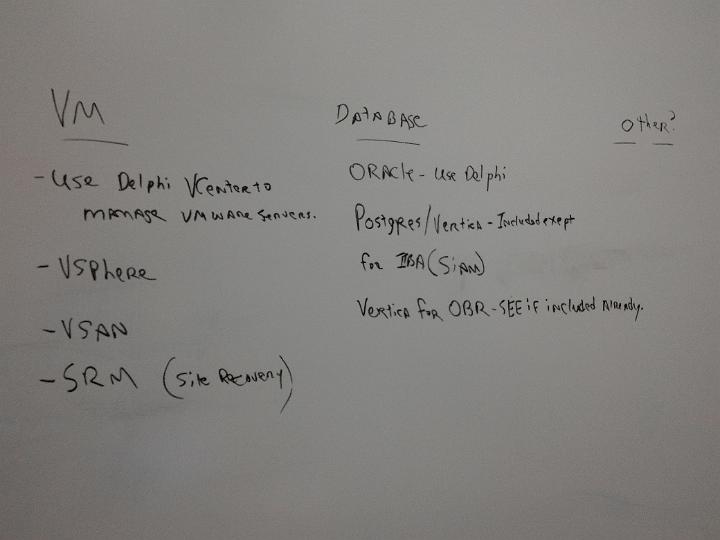 VM
- Use Delphi VCenter to
manage VMware Servers.
- VSphere
- VSAN
- SRM (Site Recovery)
DATABASE
ORACLE - Use Delphi
Postgres/Vertica - Included exept
for IBA (Siam)
Vertica for OBR - SEE if included Already.
Other?